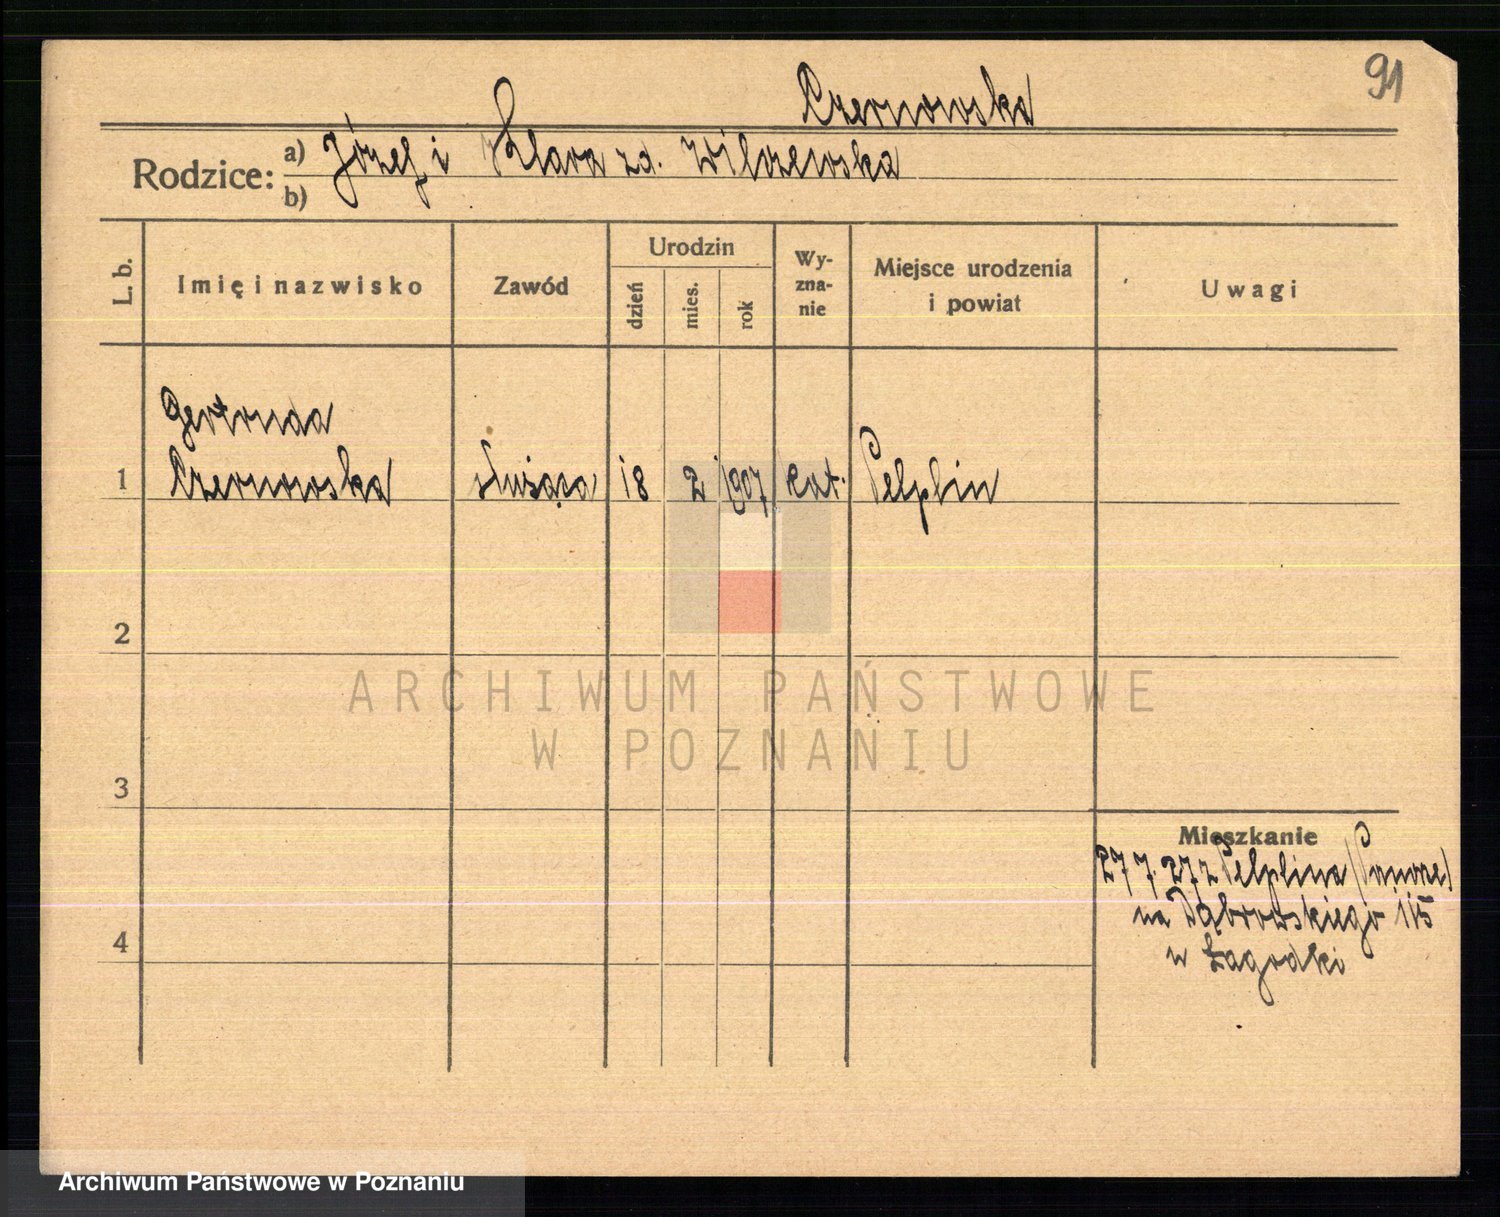 91
Czernowska
Rodzice: a) Józef i Klara zd. Wilczewska
b)
L. b. Imię i nazwisko Zawód Urodzin dzień mies. rok Wy-zna-nie Miejsce urodzenia i powiat Uwagi
Gertruda
1 Czernowska służąca 18 2 1907 kat. Pelplin
2
3
Mieszkanie
27 7. 27 z Pelplina
na Dąbrowskiego 115
4
w Łagodki
ARCHIWUM PAŃSTWOWE
W POZNANIU
Archiwum Państwowe w Poznaniu